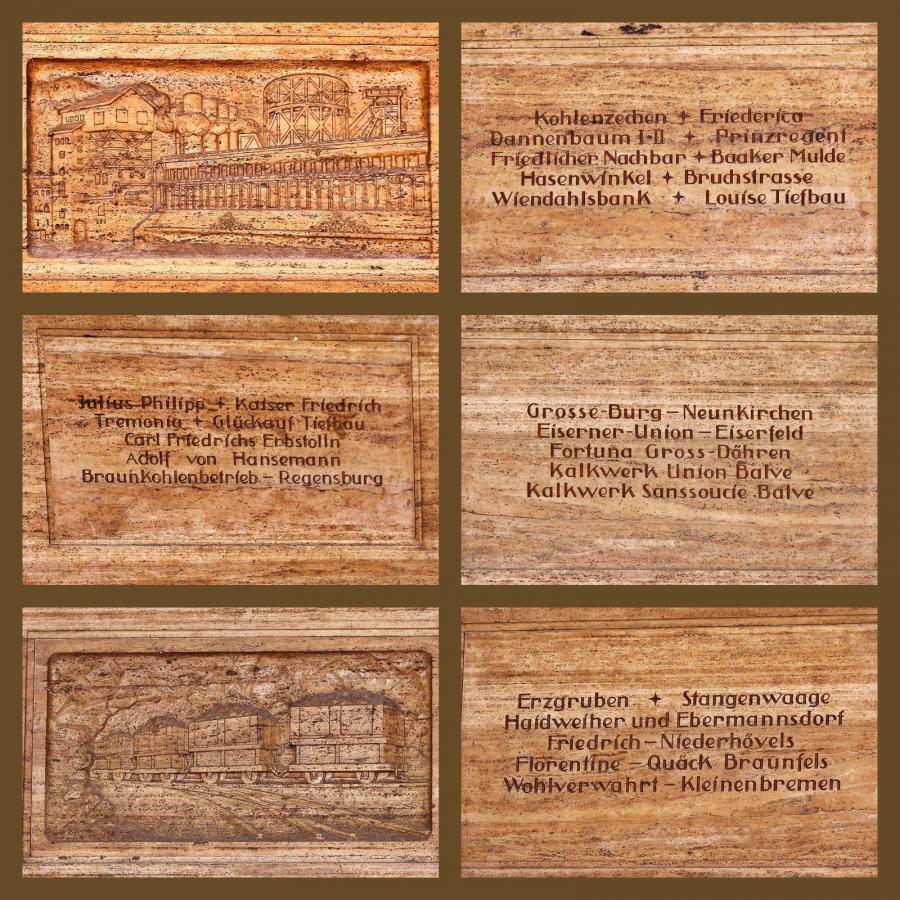 Kohlenzechen ✦ Friederica
Dannenbaum I-II ✦ Prinzregent
Friedlicher Nachbar ✦ Baaker Mulde
Hasenwinkel ✦ Bruchstrasse
Wiendahlsbank ✦ Louise Tiefbau
Julius Philipp ✦ Kaiser Friedrich
Tremonia ✦ Glückauf Tiefbau
Carl Friedrichs Erbstolln
Adolf von Hansemann
Braunkohlenbetrieb – Regensburg
Grosse-Burg – Neunkirchen
Eiserner-Union – Eiserfeld
Fortuna Gross-Döhren
Kalkwerk Union Balve
Kalkwerk Sanssoucie Balve
Erzgruben ✦ Stangenwaage
Haidweiher und Ebermannsdorf
Friedrich – Niederhövels
Florentine – Quäck Braunfels
Wohlverwahrt – Kleinenbremen